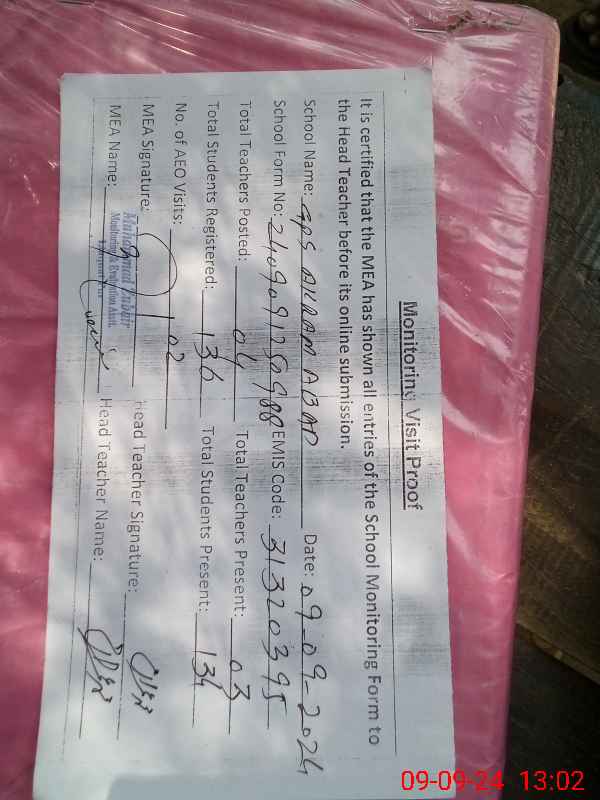 Monitoring Visit Proof
It is certified that the MEA has shown all entries of the School Monitoring Form to
the Head Teacher before its online submission.
School Name: GPS AKRAM ABAD Date: 09-09-2024
School Form No: EMIS Code: 31320395
Total Teachers Posted: 04 Total Teachers Present: 03
Total Students Registered: 136 Total Students Present: 134
No. of AEO Visits: 02
MEA Signature: Head Teacher Signature:
Muhammad
Monitoring & Evaluation Asstt.
MEA Name: Head Teacher Name:
09-09-24 13:02